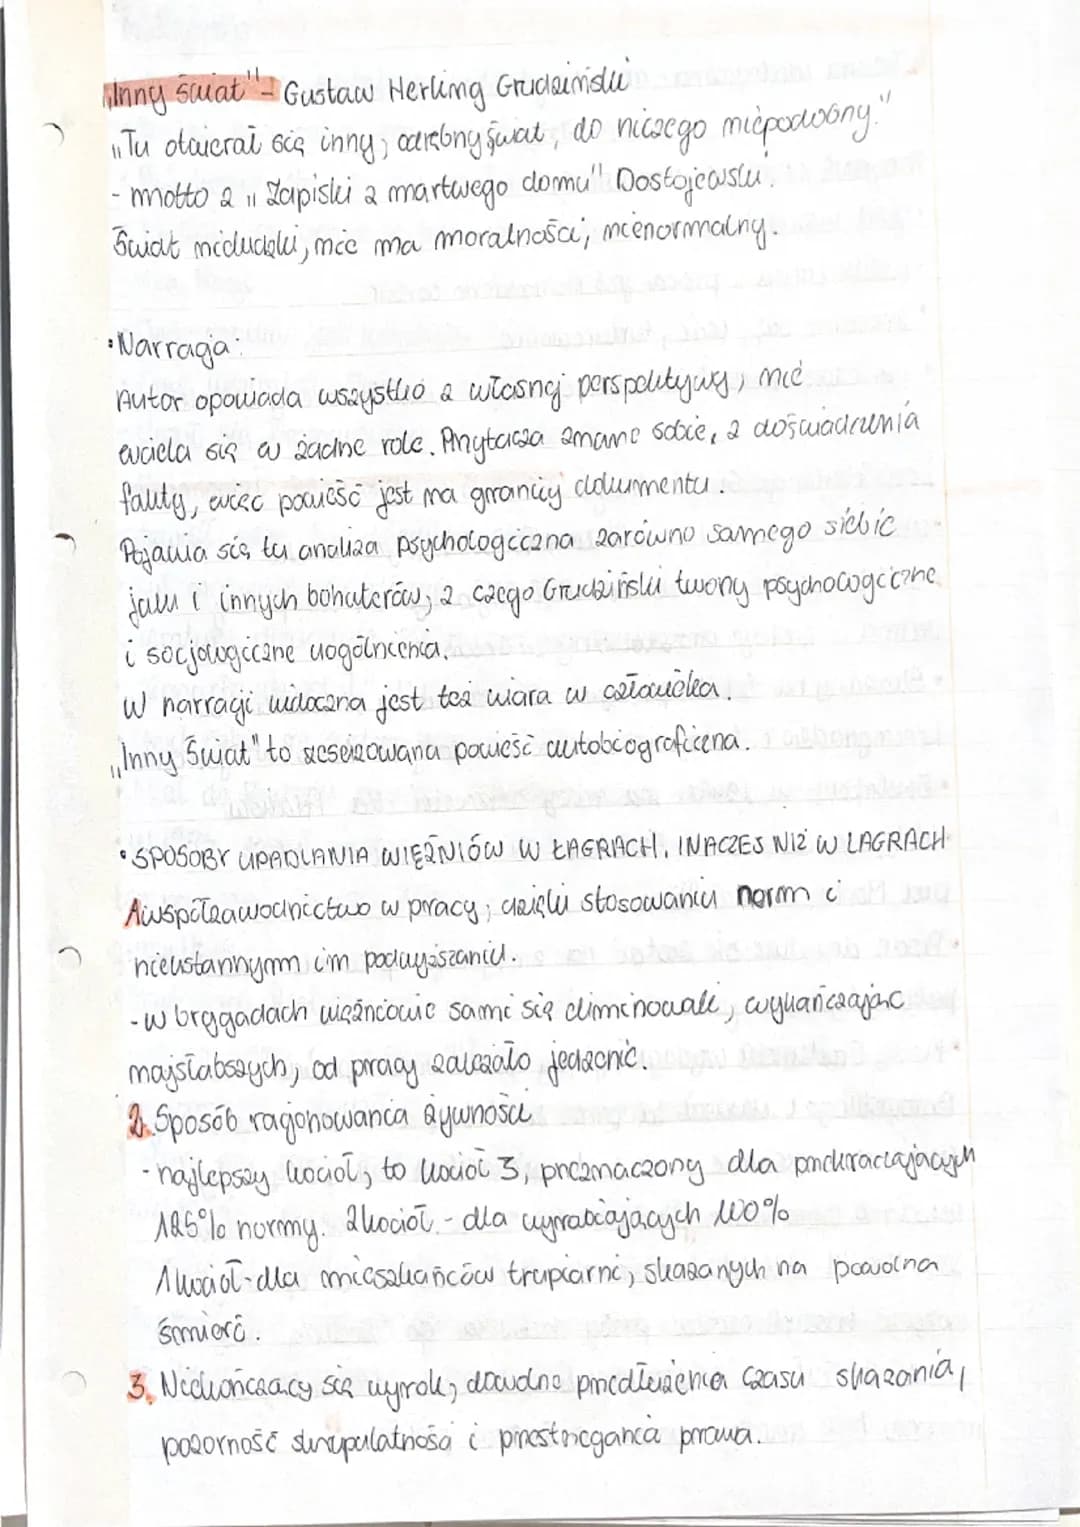 „Inny świat" - Gustaw Herling Grudziński
„Tu otwierał się inny, odrębny świat, do niczego niepodobny."
- motto z „Zapiski z martwego domu" Dostojewski.
Świat nieludzki, nie ma moralności, nienormalny.
• Narracja:
Autor opowiada wszystko z własnej perspektywy, nie
wciela się w żadne role. Przytacza znane sobie, z doświadczenia
fakty, więc powieść jest na granicy dokumentu.
Pojawia się tu analiza psychologiczna zarówno samego siebie
jak i innych bohaterów, z czego Grudziński tworzy psychologiczne
i socjologiczne uogólnienia.
W narracji widoczna jest też wiara w człowieka.
„Inny Świat" to zeseizowana powieść autobiograficzna.
• SPOSOBY UPADLANIA WIĘŹNIÓW W ŁAGRACH, INACZEJ NIŻ W LAGRACH
1. współzawodnictwo w pracy, dzięki stosowaniu norm i
nieustannym im podwyższaniu.
- w brygadach więźniowie sami się eliminowali, wykańczając
najsłabszych, od pracy zależało jedzenie.
2. Sposób racjonowania żywności
- najlepszy kocioł, to kocioł 3, przeznaczony dla przekraczających
125% normy. 2 kocioł - dla wyrabiających 100%
1 kocioł - dla mieszkańców trupiarni, skazanych na powolną
śmierć.
3. Niekończący się wyrok, dowolne przedłużenia czasu skazania,
pozorność skrupulatności i przestrzegania prawa.